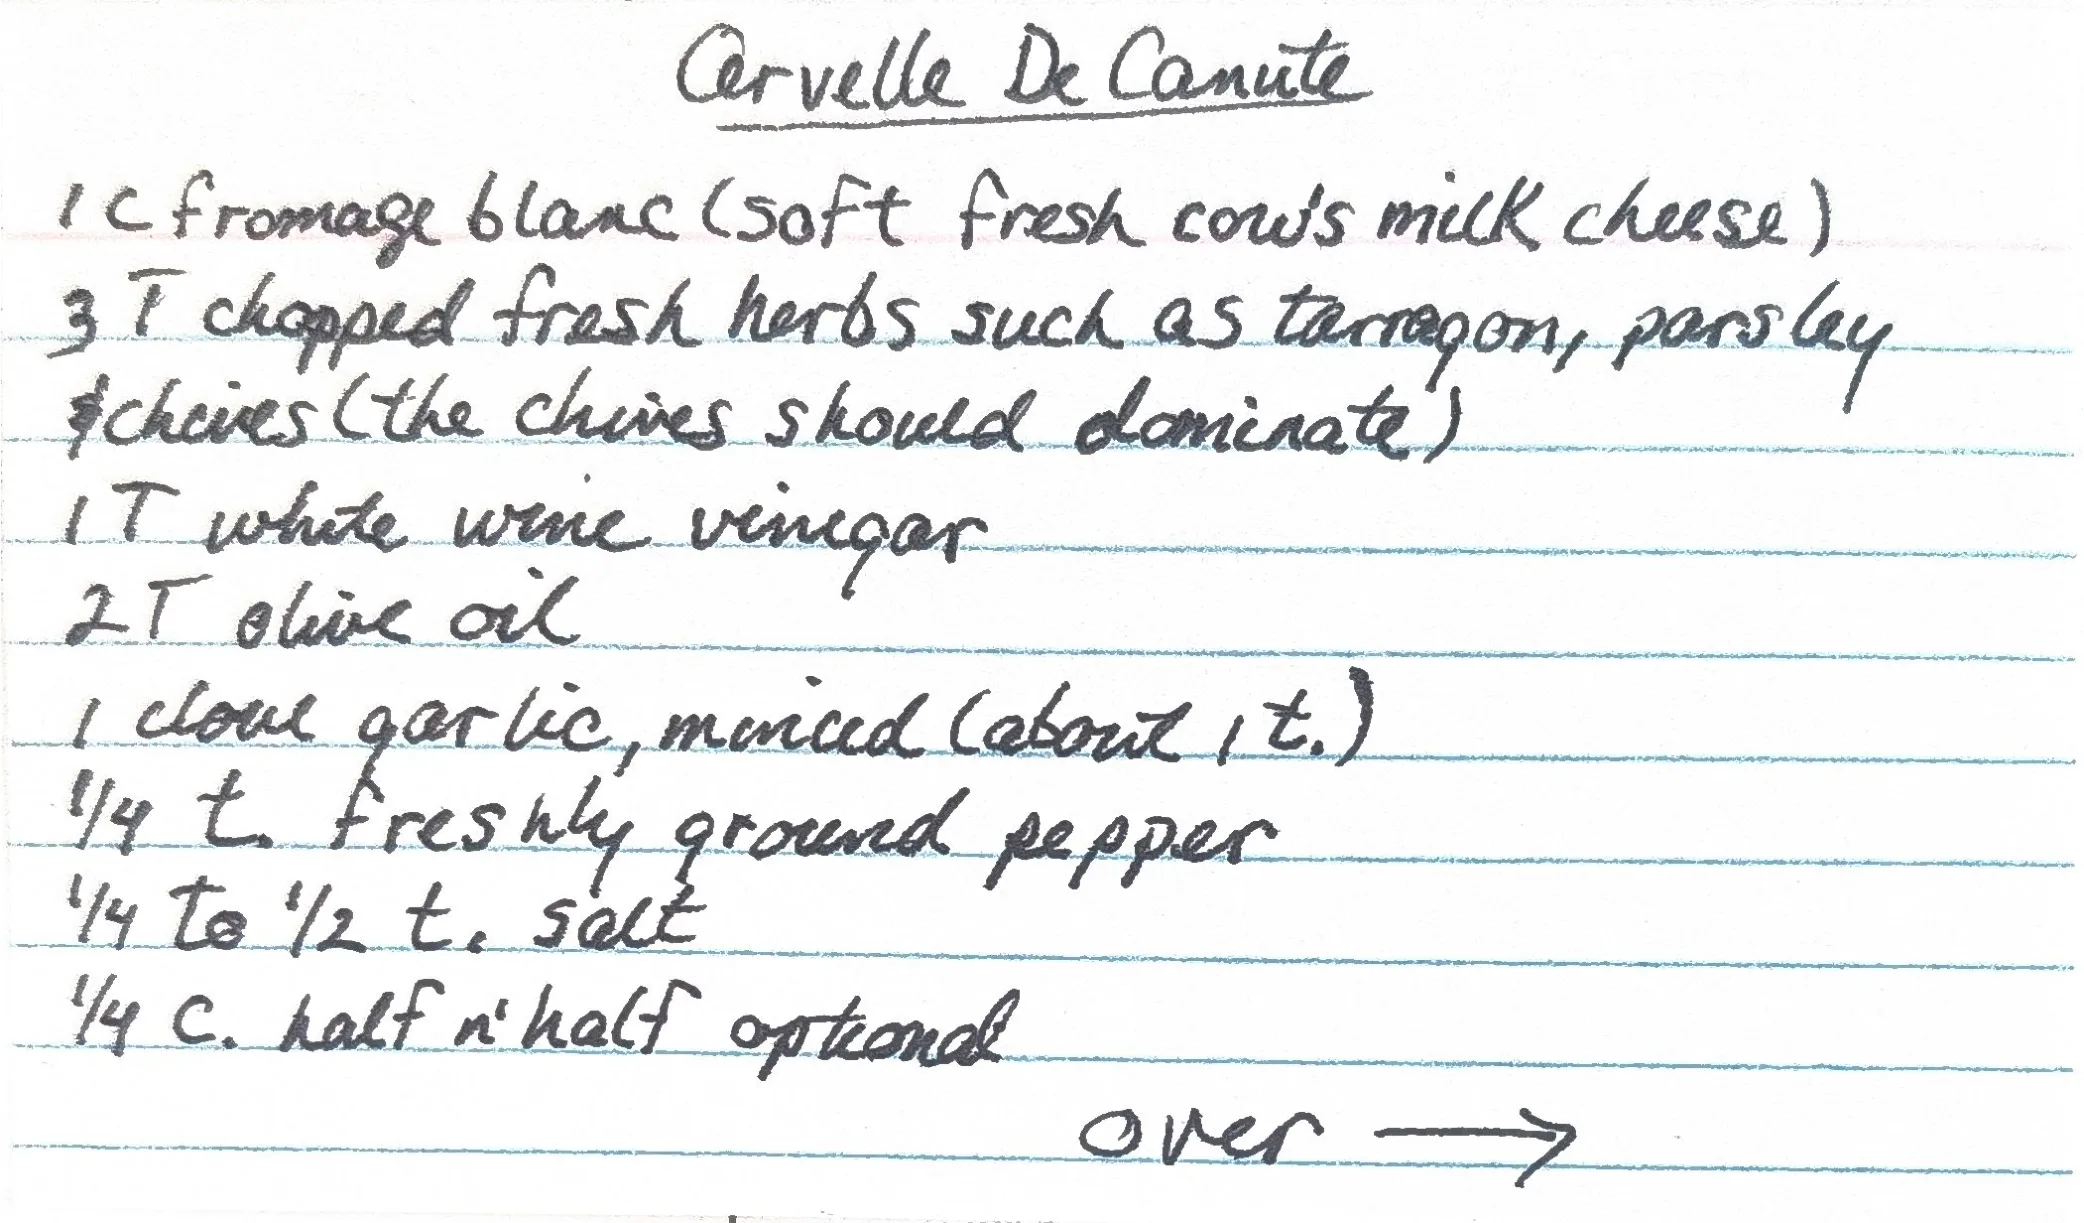 Cervelle De Canute
1 C fromage blanc (soft fresh cow's milk cheese)
3 T chopped fresh herbs such as tarragon, parsley
& chives (the chives should dominate)
1 T white wine vinegar
2 T olive oil
1 clove garlic, minced (about 1 t.)
1/4 t. freshly ground pepper
1/4 to 1/2 t. salt
1/4 C. half n' half optional
over →